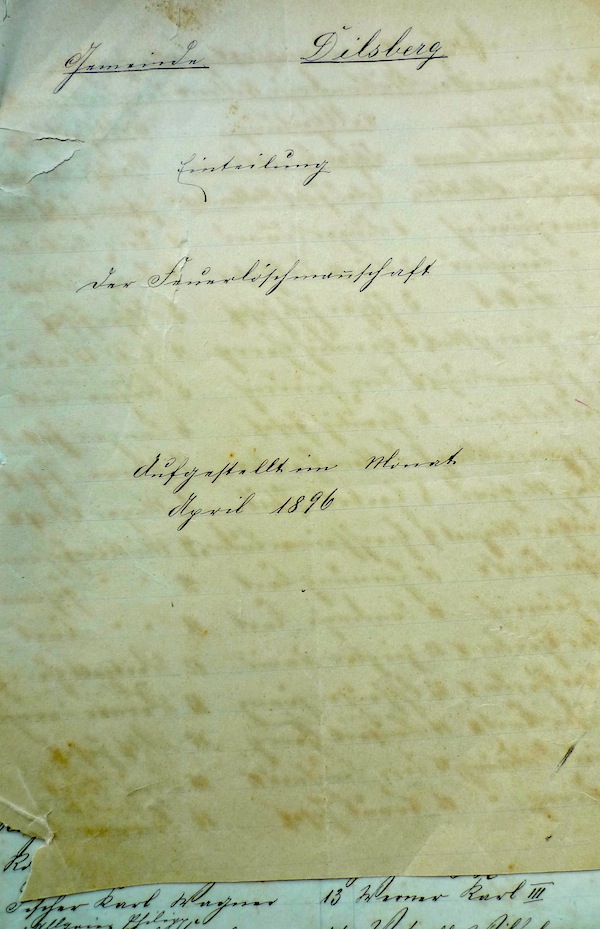 Gemeinde Dilsberg
Einteilung
der Feuerlöschmannschaft
Aufgestellt im Monat
April 1896
Fischer Karl Wagner 13 Werner Karl III
Philipp